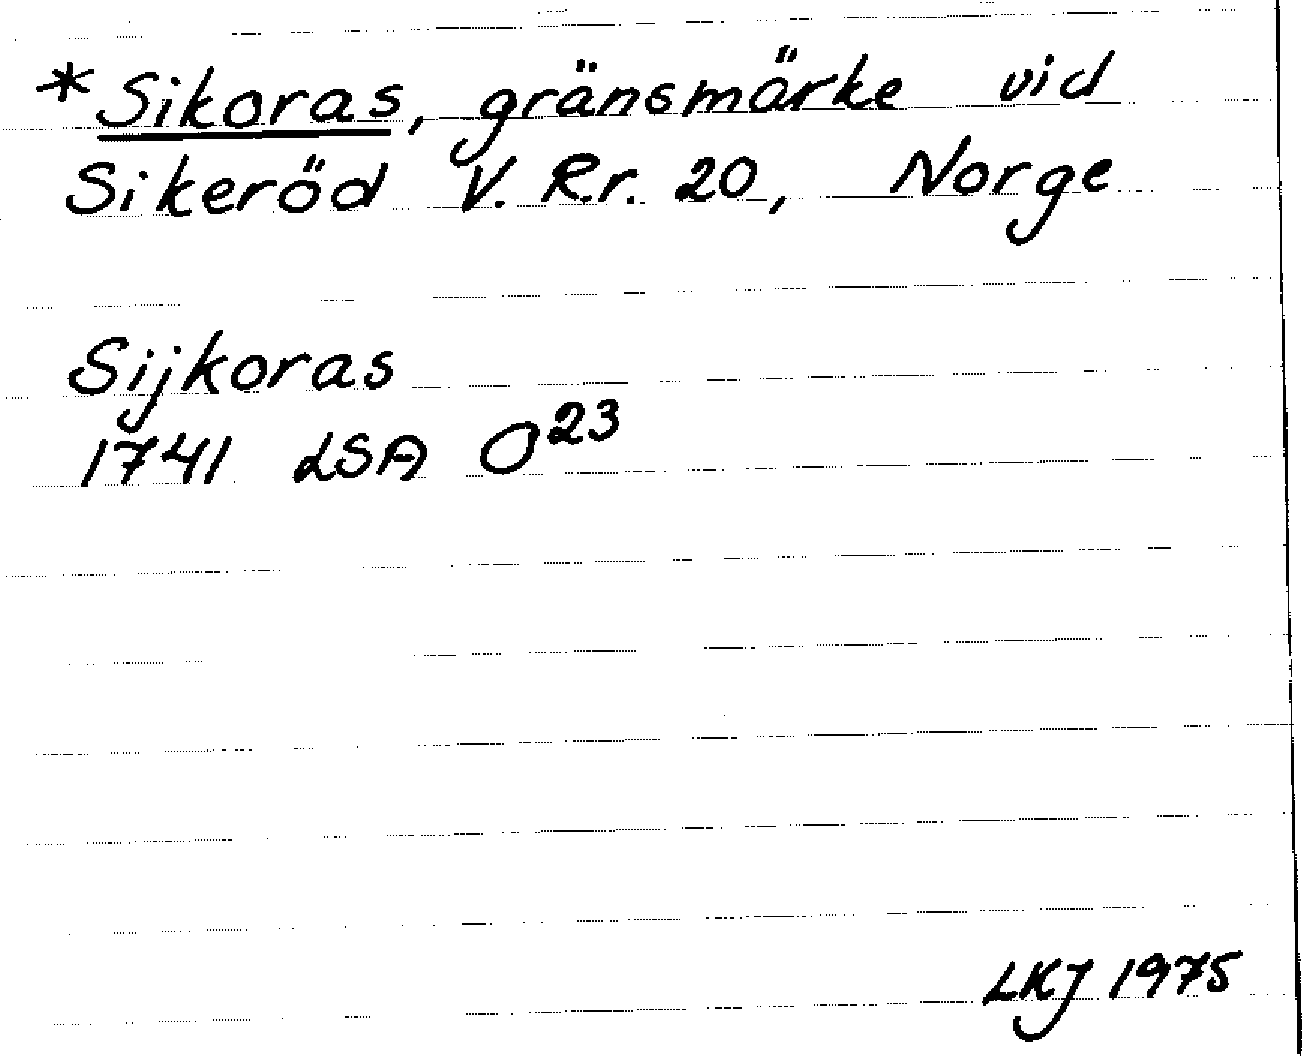 *Sikoras, gränsmärke vid
Sikeröd V. R.r. 20, Norge
Sijkoras
1741 LSA O²³
LKJ 1975